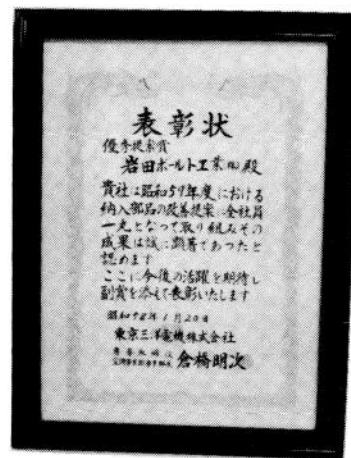 表彰状
優秀提案賞
岩田ボールト工業(株)殿
貴社は昭和57年度における
納入部品の改善提案に全社員
一丸となって取り組みその
成果は誠に顕著であったと
認めます
ここに今後の活躍を期待し
副賞を添えて表彰いたします
昭和58年1月20日
東京三洋電機株式会社
倉橋明次